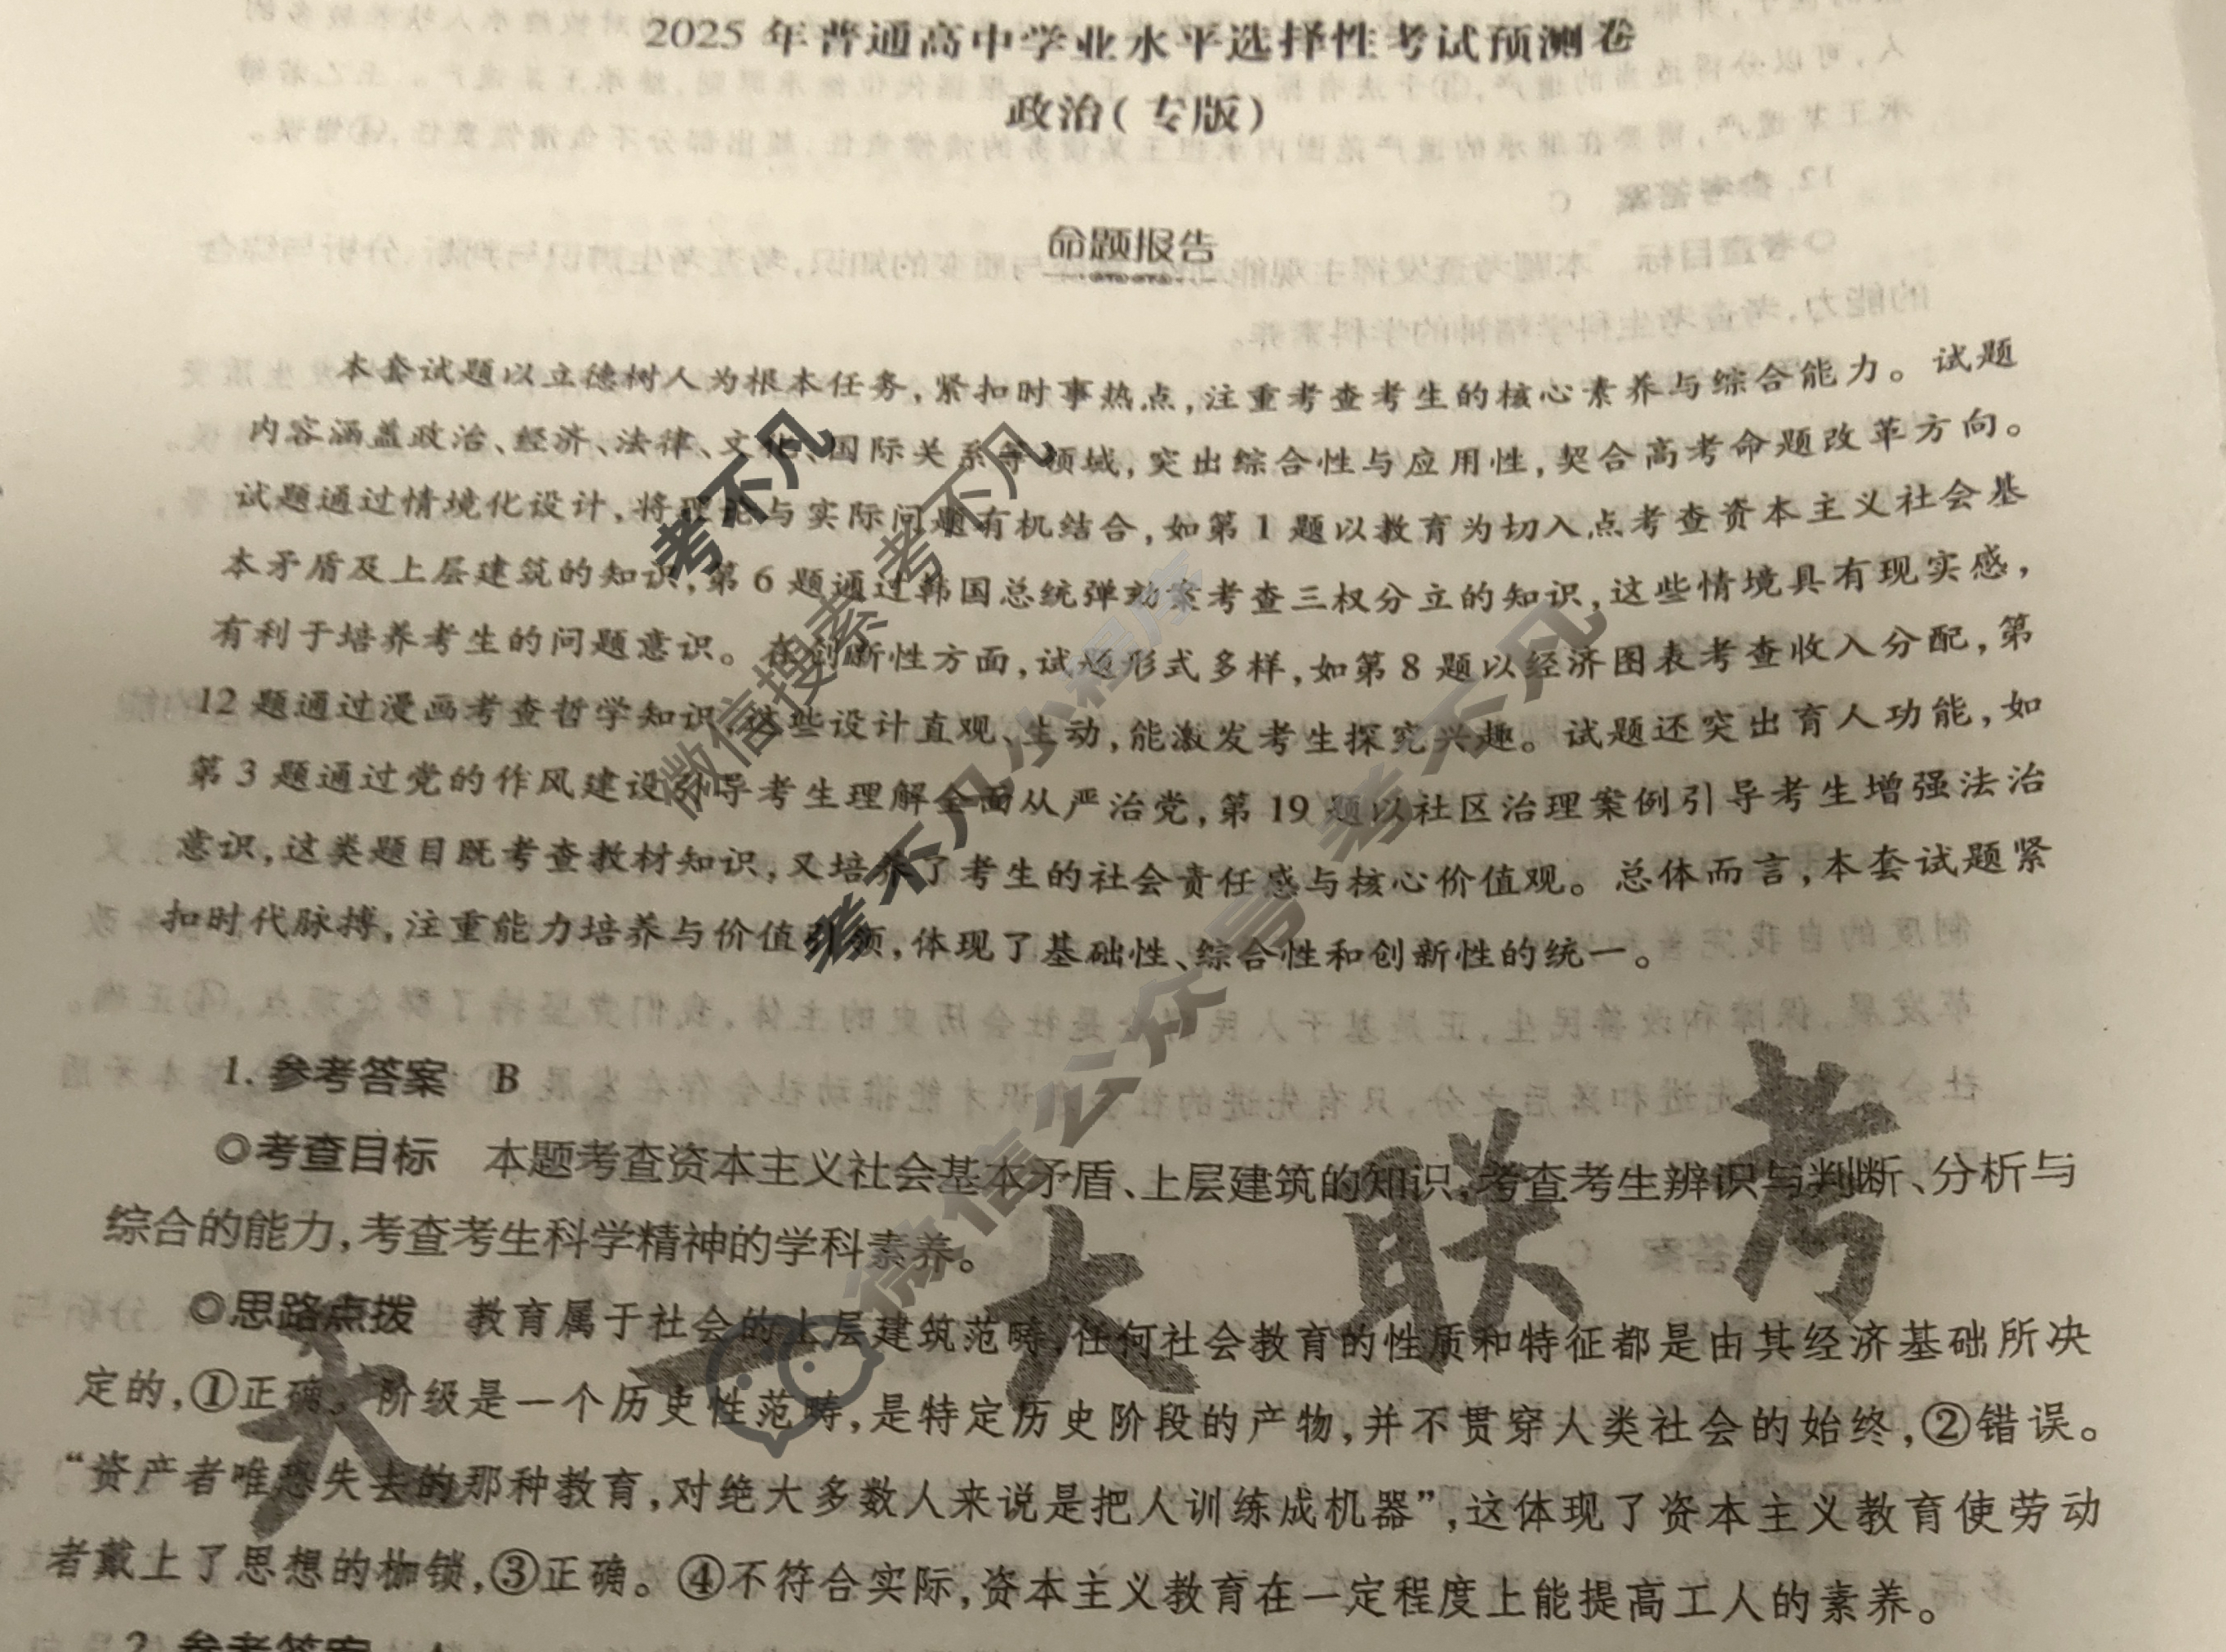 2025年普通高中学业水平选择性考试预测卷
政治(专版)
命题报告
本套试题以立德树人为根本任务,紧扣时事热点,注重考查考生的核心素养与综合能力。试题
内容涵盖政治、经济、法律、文化、国际关系等领域,突出综合性与应用性,契合高考命题改革方向。
试题通过情境化设计,将理论与实际问题有机结合,如第1题以教育为切入点考查资本主义社会基
本矛盾及上层建筑的知识,第6题通过韩国总统弹劾案考查三权分立的知识,这些情境具有现实感,
有利于培养考生的问题意识。在创新性方面,试题形式多样,如第8题以经济图表考查收入分配,第
12题通过漫画考查哲学知识,这些设计直观、生动,能激发考生探究兴趣。试题还突出育人功能,如
第3题通过党的作风建设引导考生理解全面从严治党,第19题以社区治理案例引导考生增强法治
意识,这类题目既考查教材知识,又培养了考生的社会责任感与核心价值观。总体而言,本套试题紧
扣时代脉搏,注重能力培养与价值引领,体现了基础性、综合性和创新性的统一。
1. 参考答案 B
◎考查目标 本题考查资本主义社会基本矛盾、上层建筑的知识,考查考生辨识与判断、分析与
综合的能力,考查考生科学精神的学科素养。
◎思路点拨 教育属于社会的上层建筑范畴,任何社会教育的性质和特征都是由其经济基础所决
定的,①正确。阶级是一个历史性范畴,是特定历史阶段的产物,并不贯穿人类社会的始终,②错误。
“资产者唯恐失去的那种教育,对绝大多数人来说是把人训练成机器”,这体现了资本主义教育使劳动
者戴上了思想的枷锁,③正确。④不符合实际,资本主义教育在一定程度上能提高工人的素养。
2. 参考答案
天一大联考
考不凡
微信搜索 考不凡
考不凡小程序
微信公众号 考不凡